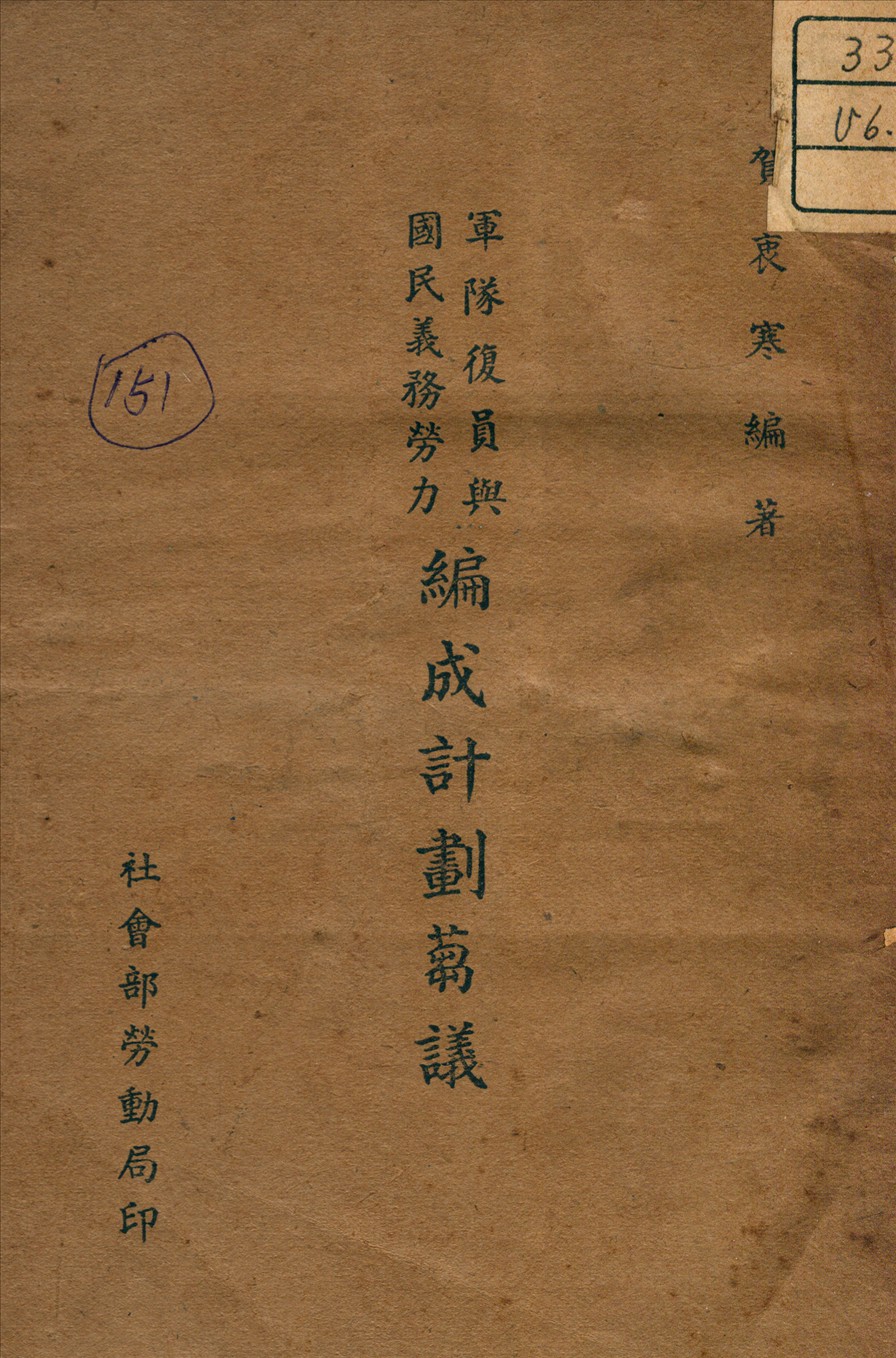 賀衷寒編著
軍隊復員與
國民義務勞力
編成計劃芻議
社會部勞動局印
151
33
U6.